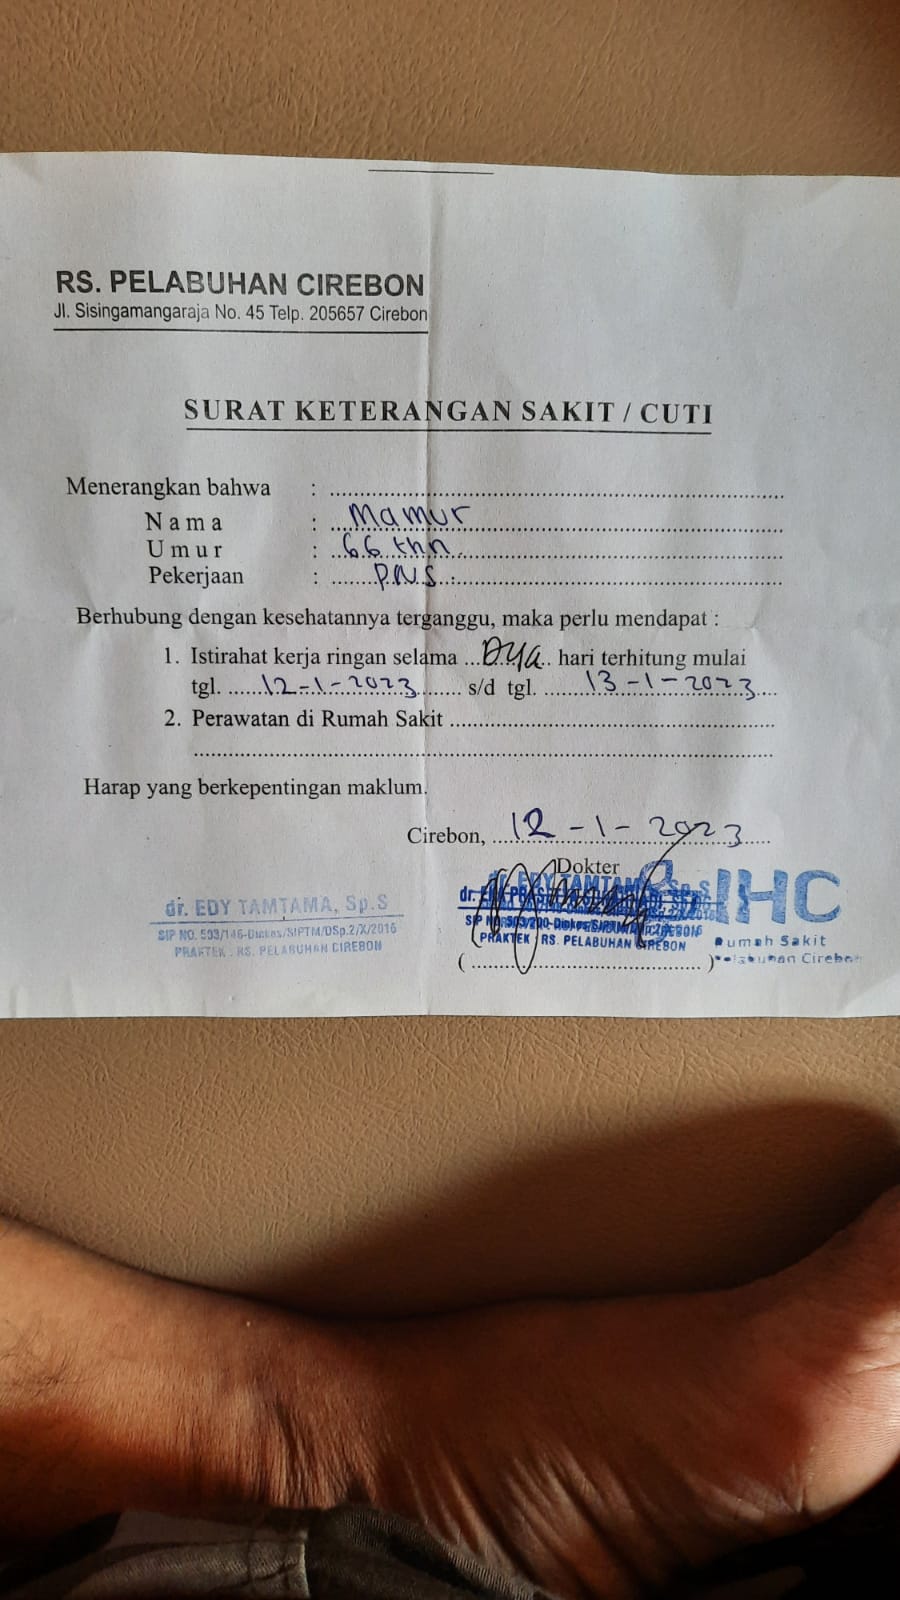 RS. PELABUHAN CIREBON
Jl. Sisingamangaraja No. 45 Telp. 205657 Cirebon
SURAT KETERANGAN SAKIT / CUTI
Menerangkan bahwa : ........................
Nama : Mamur
Umur : 66 thn
Pekerjaan : PNS
Berhubung dengan kesehatannya terganggu, maka perlu mendapat :
1. Istirahat kerja ringan selama ... Dya .. hari terhitung mulai
tgl. ...... 12-1-2023 ...... s/d tgl. ...... 13-1-2023 ....
2. Perawatan di Rumah Sakit ........................
Harap yang berkepentingan maklum.
Cirebon, ... 12-1-2023 ....
Dokter
dr. EDY TAMTAMA, Sp.S
SIP NO. 593/146-Dinkes/SIPTM/DSp.2/X/2016
PRAKTEK : RS. PELABUHAN CIREBON
PRAKTEK : RS. PELABUHAN CIREBON
IHC
Rumah Sakit
Pelabuhan Cirebon
(........................)